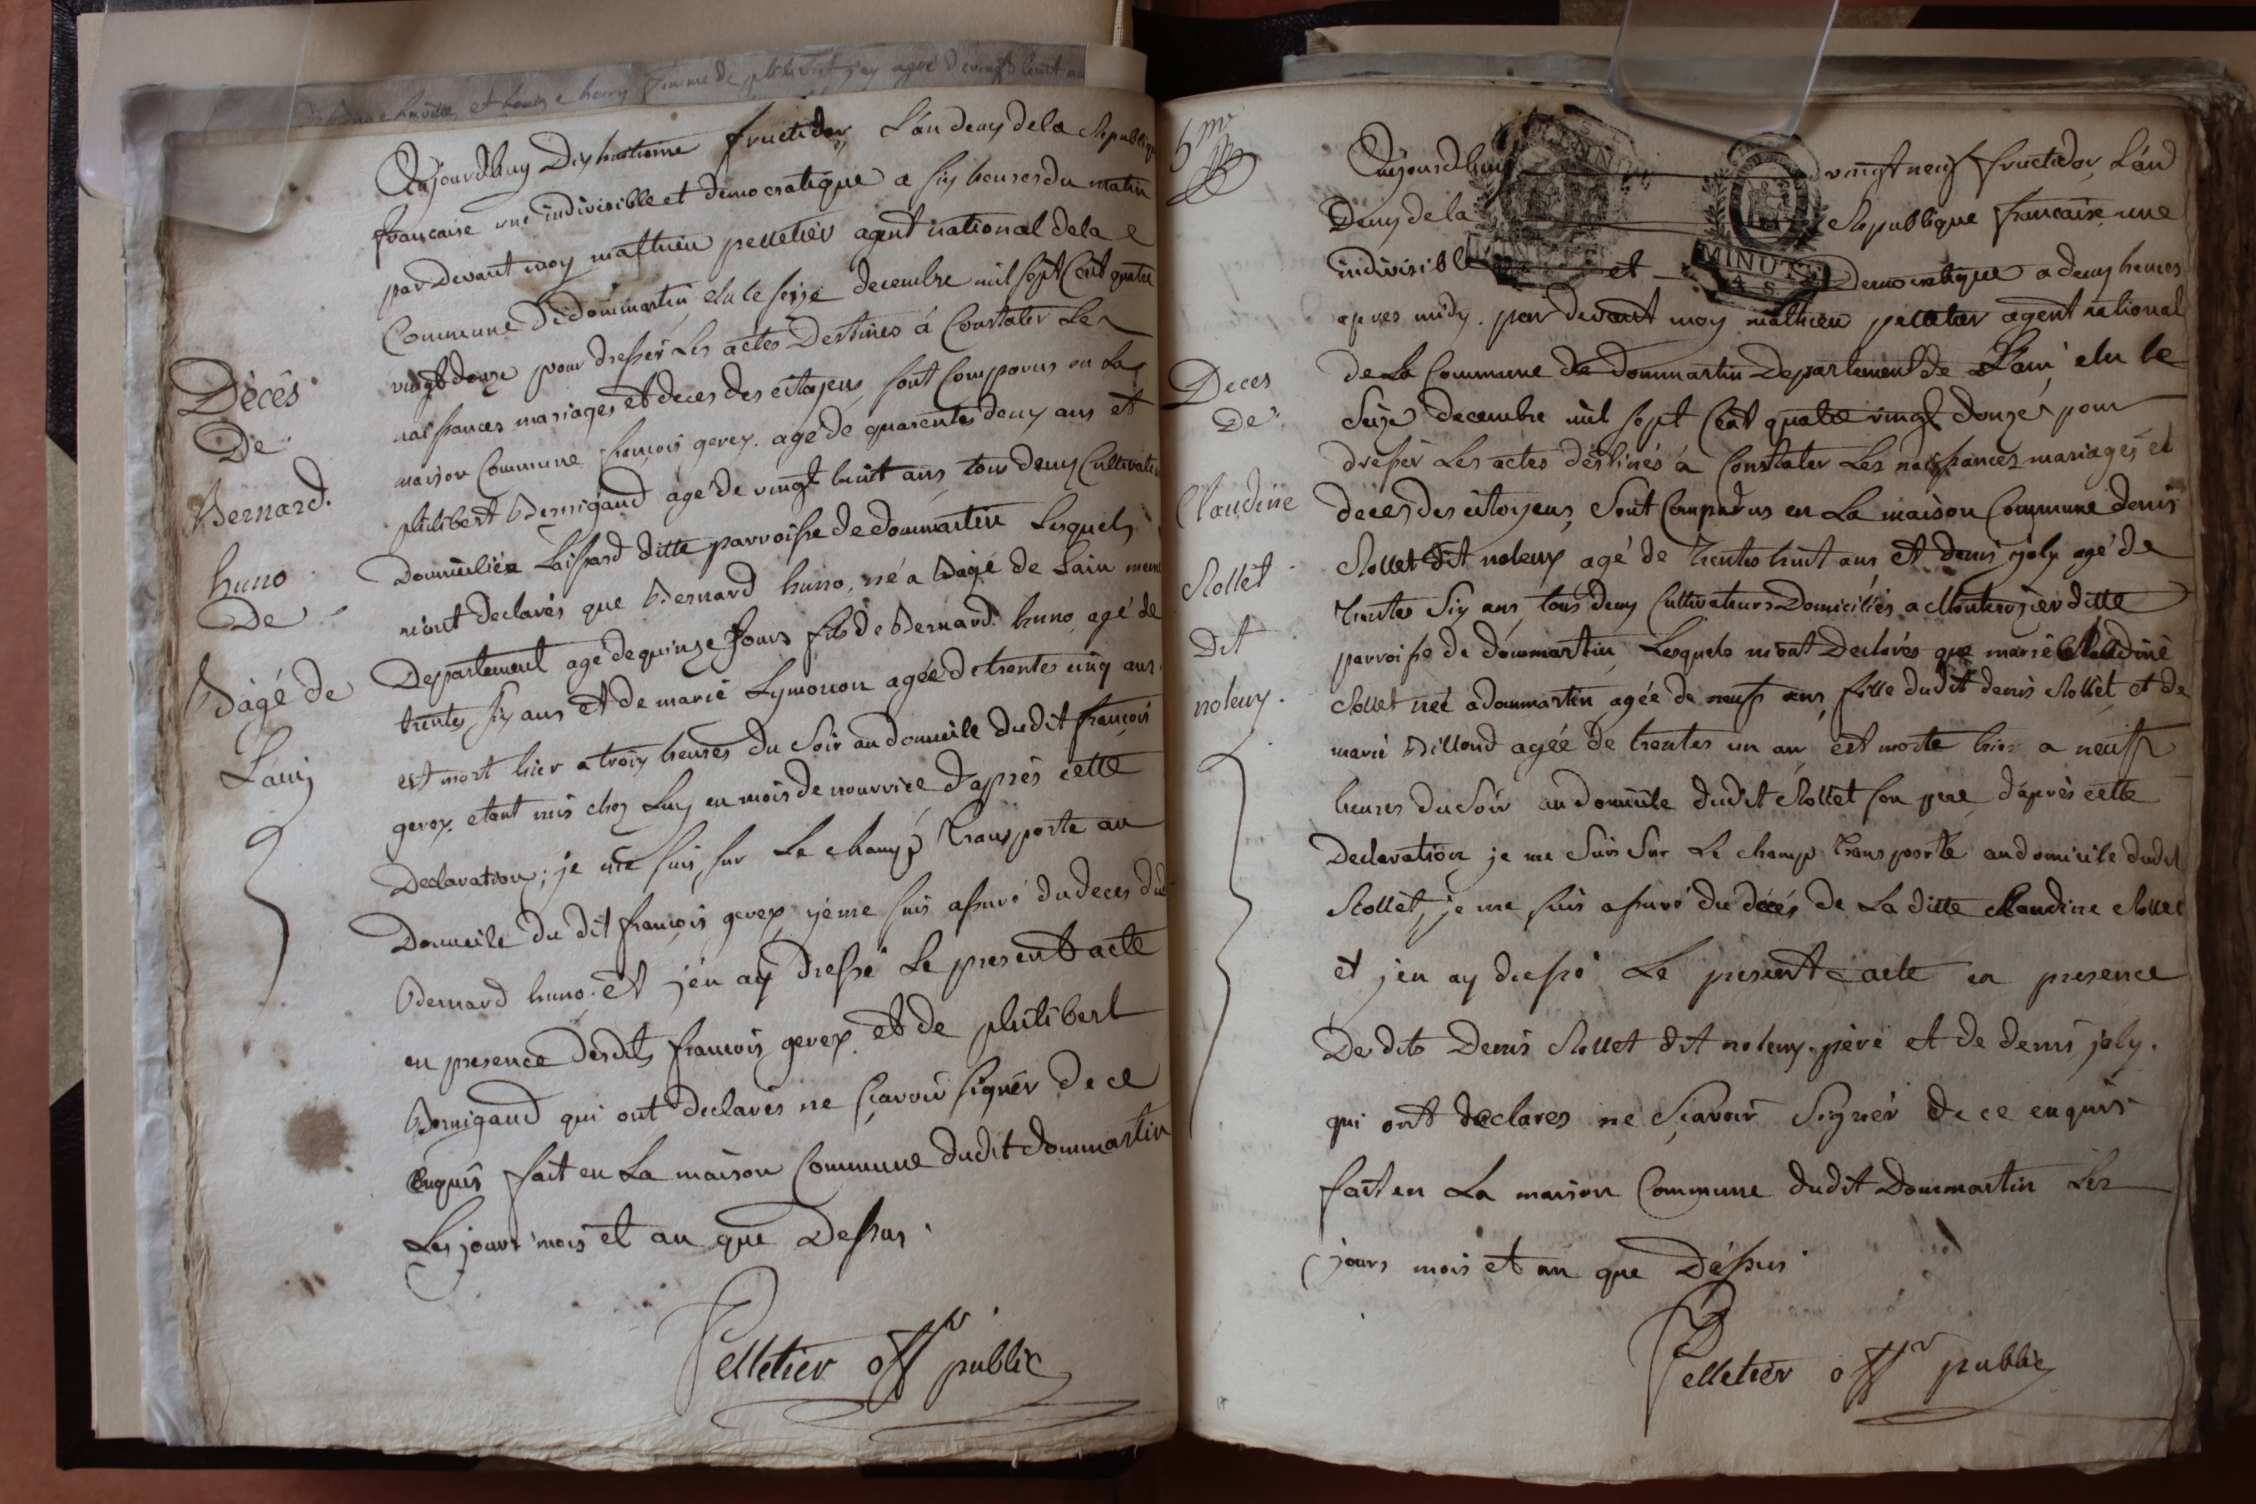 Aujourdhuy Dixhuitieme fructidor L'an deux de la Republiq
francaise une indivisible et democratique a six heures du matin
par Devant moy mathieu pelletier agent national de la
Commune De dommartin elu le seize decembre mil sept Cent quatre
vingt douze pour dresser Les actes Destinés á Constater Les
naissances mariages et deces des citoyens sont Comparus en La
maison Commune françois gerex agé de quarente deux ans et
philibert Bernigaud agé de vingt huit ans tous deux Cultivate
Domiciliés ditte parroisse de dommartin Lesquels
m'ont declarés que Bernard huno, né a Bagé de Lain meme
Departement agé de quinze Jours fils de Bernard huno agé de
trente six ans et de marie Lymonon agée de trente cinq ans
est mort hier a trois heures du Soir au domicile dudit françois
gerex etant mis chez Luy en mois de nourrice d'apres cette
Declaration; je me suis sur Le champ transporte au
Domicile du dit françois gerex, je me suis assuré du deces dud
Bernard huno. et j'en ay dressé Le present acte
en presence desdits françois gerex et de philibert
Bernigaud qui ont declarés ne sçavoir signer De ce
enquis fait en La maison Commune dudit dommartin
Les jours mois et an que Dessus.
Pelletier offr public
Décès
De
Bernard
huno
De
Bagé de
L'ain
Aujourdhuy vingt neuf fructidor L'an
Deux de la Republique francaise une
indivisible et Democratique a deux heures
apres midy par devant moy mathieu pelletier agent national
de La Commune de dommartin Departement de L'ain, elu le
Seize decembre mil sept Cent quatre vingt douze pour
dresser Les actes destinés a Constater Les naissances mariages et
deces des citoyens, Sont Comparus en La maison Commune denis
Rollet dit noleux agé de trente huit ans et denis joly agé de
trente Six ans, tous deux Cultivateurs Domiciliés a Montrozier ditte
parroisse de dommartin Lesquels m'ont Declarés que marie Claudine
Rollet neé a dommartin agée de neuf ans, fille dudit denis Rollet, et de
marie Billoud agée de trente un an est morte hier a neuf
heures du Soir au domicile dudit Rollet son pere, d'après cette
Declaration je me Suis Sur Le champ transporté au domicile dudit
Rollet, je me suis assuré du décés de La ditte Claudine Rollet
et j'en ay dressé Le present acte en presence
De dits Denis Rollet dit noleux père et de denis joly.
qui ont declares ne Sçavoir Signer de ce enquis
fait en La maison Commune dudit Dommartin Les
jours mois et an que Déssus
Pelletier offr public
MINUTE
Deces
De
Claudine
Rollet
dit
noleux.